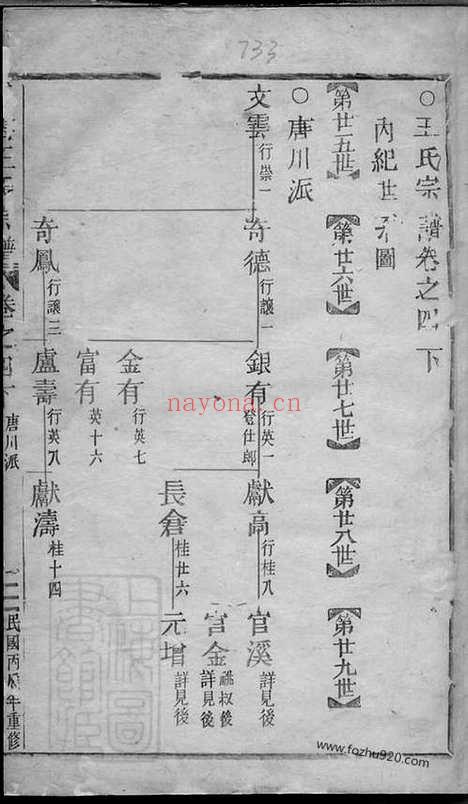 733
○王氏宗譜卷之四下
內紀世系圖
【第廿五世】【第廿六世】【第廿七世】【第廿八世】【第廿九世】
○唐川派
文雲 行崇一
奇德 行讓一
銀有 行英一 登仕郎
獻高 行桂八
官溪 詳見後
官金 祧叔後 詳見後
長倉 桂廿六
元增 詳見後
金有 行英七
富有 英十六
奇鳳 行讓三
盧壽 行英八
獻濤 桂十四
宗譜 卷之四下 唐川派
民國丙 年重修
nayona.cn
www.fozhu920.com